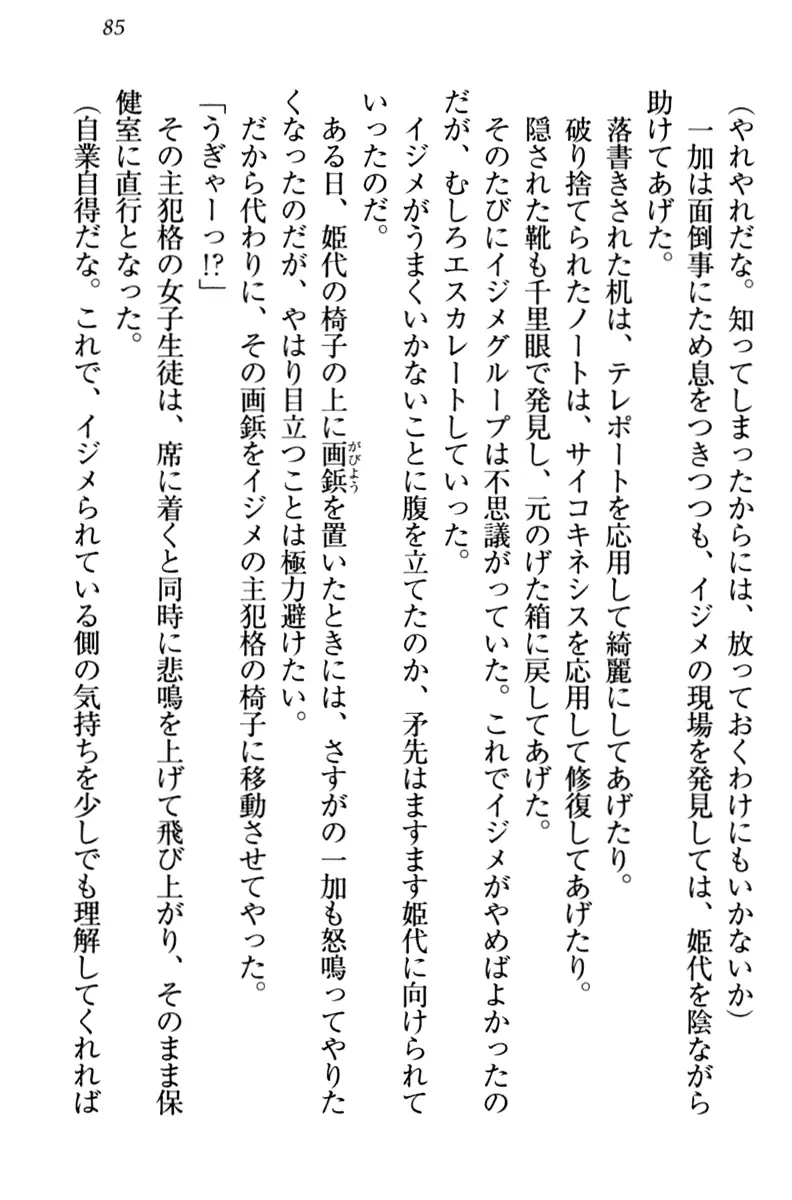 85
(やれやれだな。知ってしまったからには、放っておくわけにもいかないか)
一加は面倒事にため息をつきつつも、イジメの現場を発見しては、姫代を陰ながら
助けてあげた。
落書きされた机は、テレポートを応用して綺麗にしてあげたり。
破り捨てられたノートは、サイコキネシスを応用して修復してあげたり。
隠された靴も千里眼で発見し、元のげた箱に戻してあげた。
そのたびにイジメグループは不思議がっていた。これでイジメがやめばよかったの
だが、むしろエスカレートしていった。
イジメがうまくいかないことに腹を立てたのか、矛先はますます姫代に向けられて
いったのだ。
ある日、姫代の椅子の上に画鋲を置いたときには、さすがの一加も怒鳴ってやりた
がびよう
くなったのだが、やはり目立つことは極力避けたい。
だから代わりに、その画鋲をイジメの主犯格の椅子に移動させてやった。
「うぎゃーっ!?」
その主犯格の女子生徒は、席に着くと同時に悲鳴を上げて飛び上がり、そのまま保
健室に直行となった。
(自業自得だな。これで、イジメられている側の気持ちを少しでも理解してくれれば